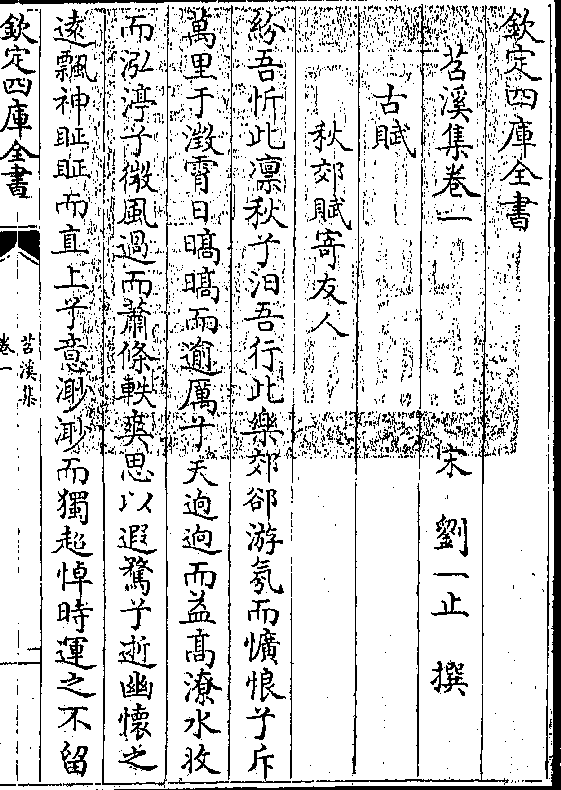 欽定四庫全書
苕溪集卷一
宋 劉一止 撰
古賦
秋郊賦寄友人
紛吾忻此凛秋兮汩吾行此樂郊郤游氛而懭悢兮斥
萬里于澂霄日暠暠而逾厲兮天逈逈而益髙潦水收
而泓渟兮微風過而蕭條軼䆮思以遐騖兮逝幽懷之
逺飄神眐眐而直上兮意渺渺而獨起悼時運之不留
欽定四庫全書
苕溪集
卷一